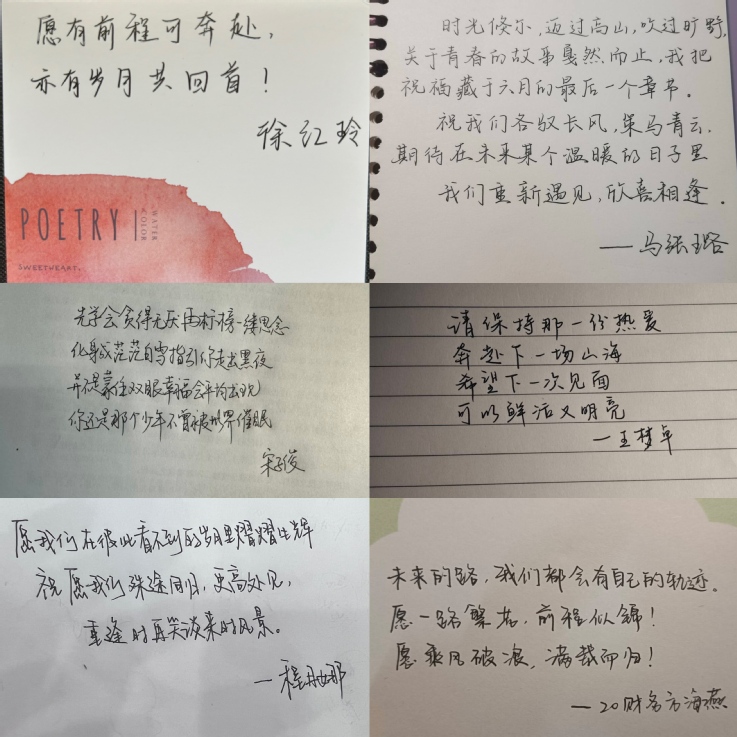 愿有前程可奔赴，
亦有岁月共回首！
徐红玲
POETRY
WATER
COLOR
SWEETHEART.
时光倏尔，迈过高山，吹过旷野，
关于青春的故事戛然而止，我把
祝福藏于六月的最后一个章节。
祝我们各驭长风，策马青云，
期待在未来某个温暖的日子里
我们重新遇见，欣喜相逢．
——马张珞
先学会贪得无厌再标榜一缕思念
化身成茫茫白雪指引你走出黑夜
并不是蒙住双眼幸福会平均出现
你还是那个少年不曾被世界催眠
请保持那一份热爱
奔赴下一场山海
希望下一次见面
可以鲜活又明亮
—王梦卓
愿我们在彼此看不到的岁月里熠熠生辉
祝愿我们殊途同归，更高处见，
重逢时再笑谈来时风景。
—程丹娜
未来的路，我们都会有自己的轨迹。
愿一路繁花，前程似锦！
愿乘风破浪，满载而归！
—20财务方海燕